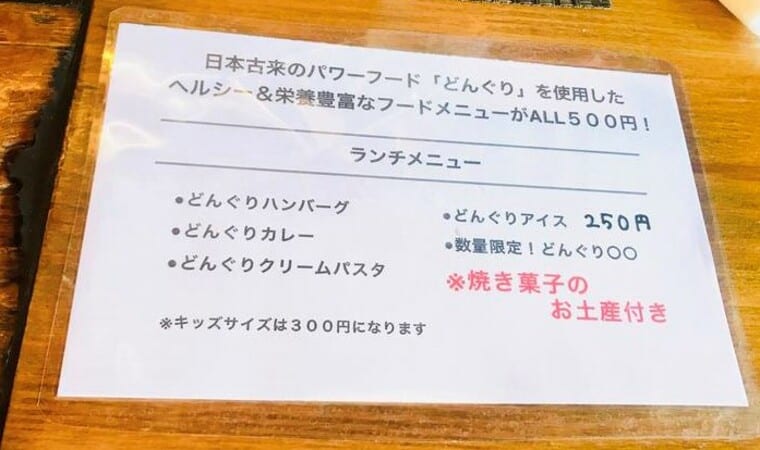 日本古来のパワーフード「どんぐり」を使用した
ヘルシー＆栄養豊富なフードメニューがALL５００円！
ランチメニュー
●どんぐりハンバーグ
●どんぐりカレー
●どんぐりクリームパスタ
※キッズサイズは３００円になります
●どんぐりアイス 250円
●数量限定！どんぐり〇〇
※焼き菓子の
お土産付き